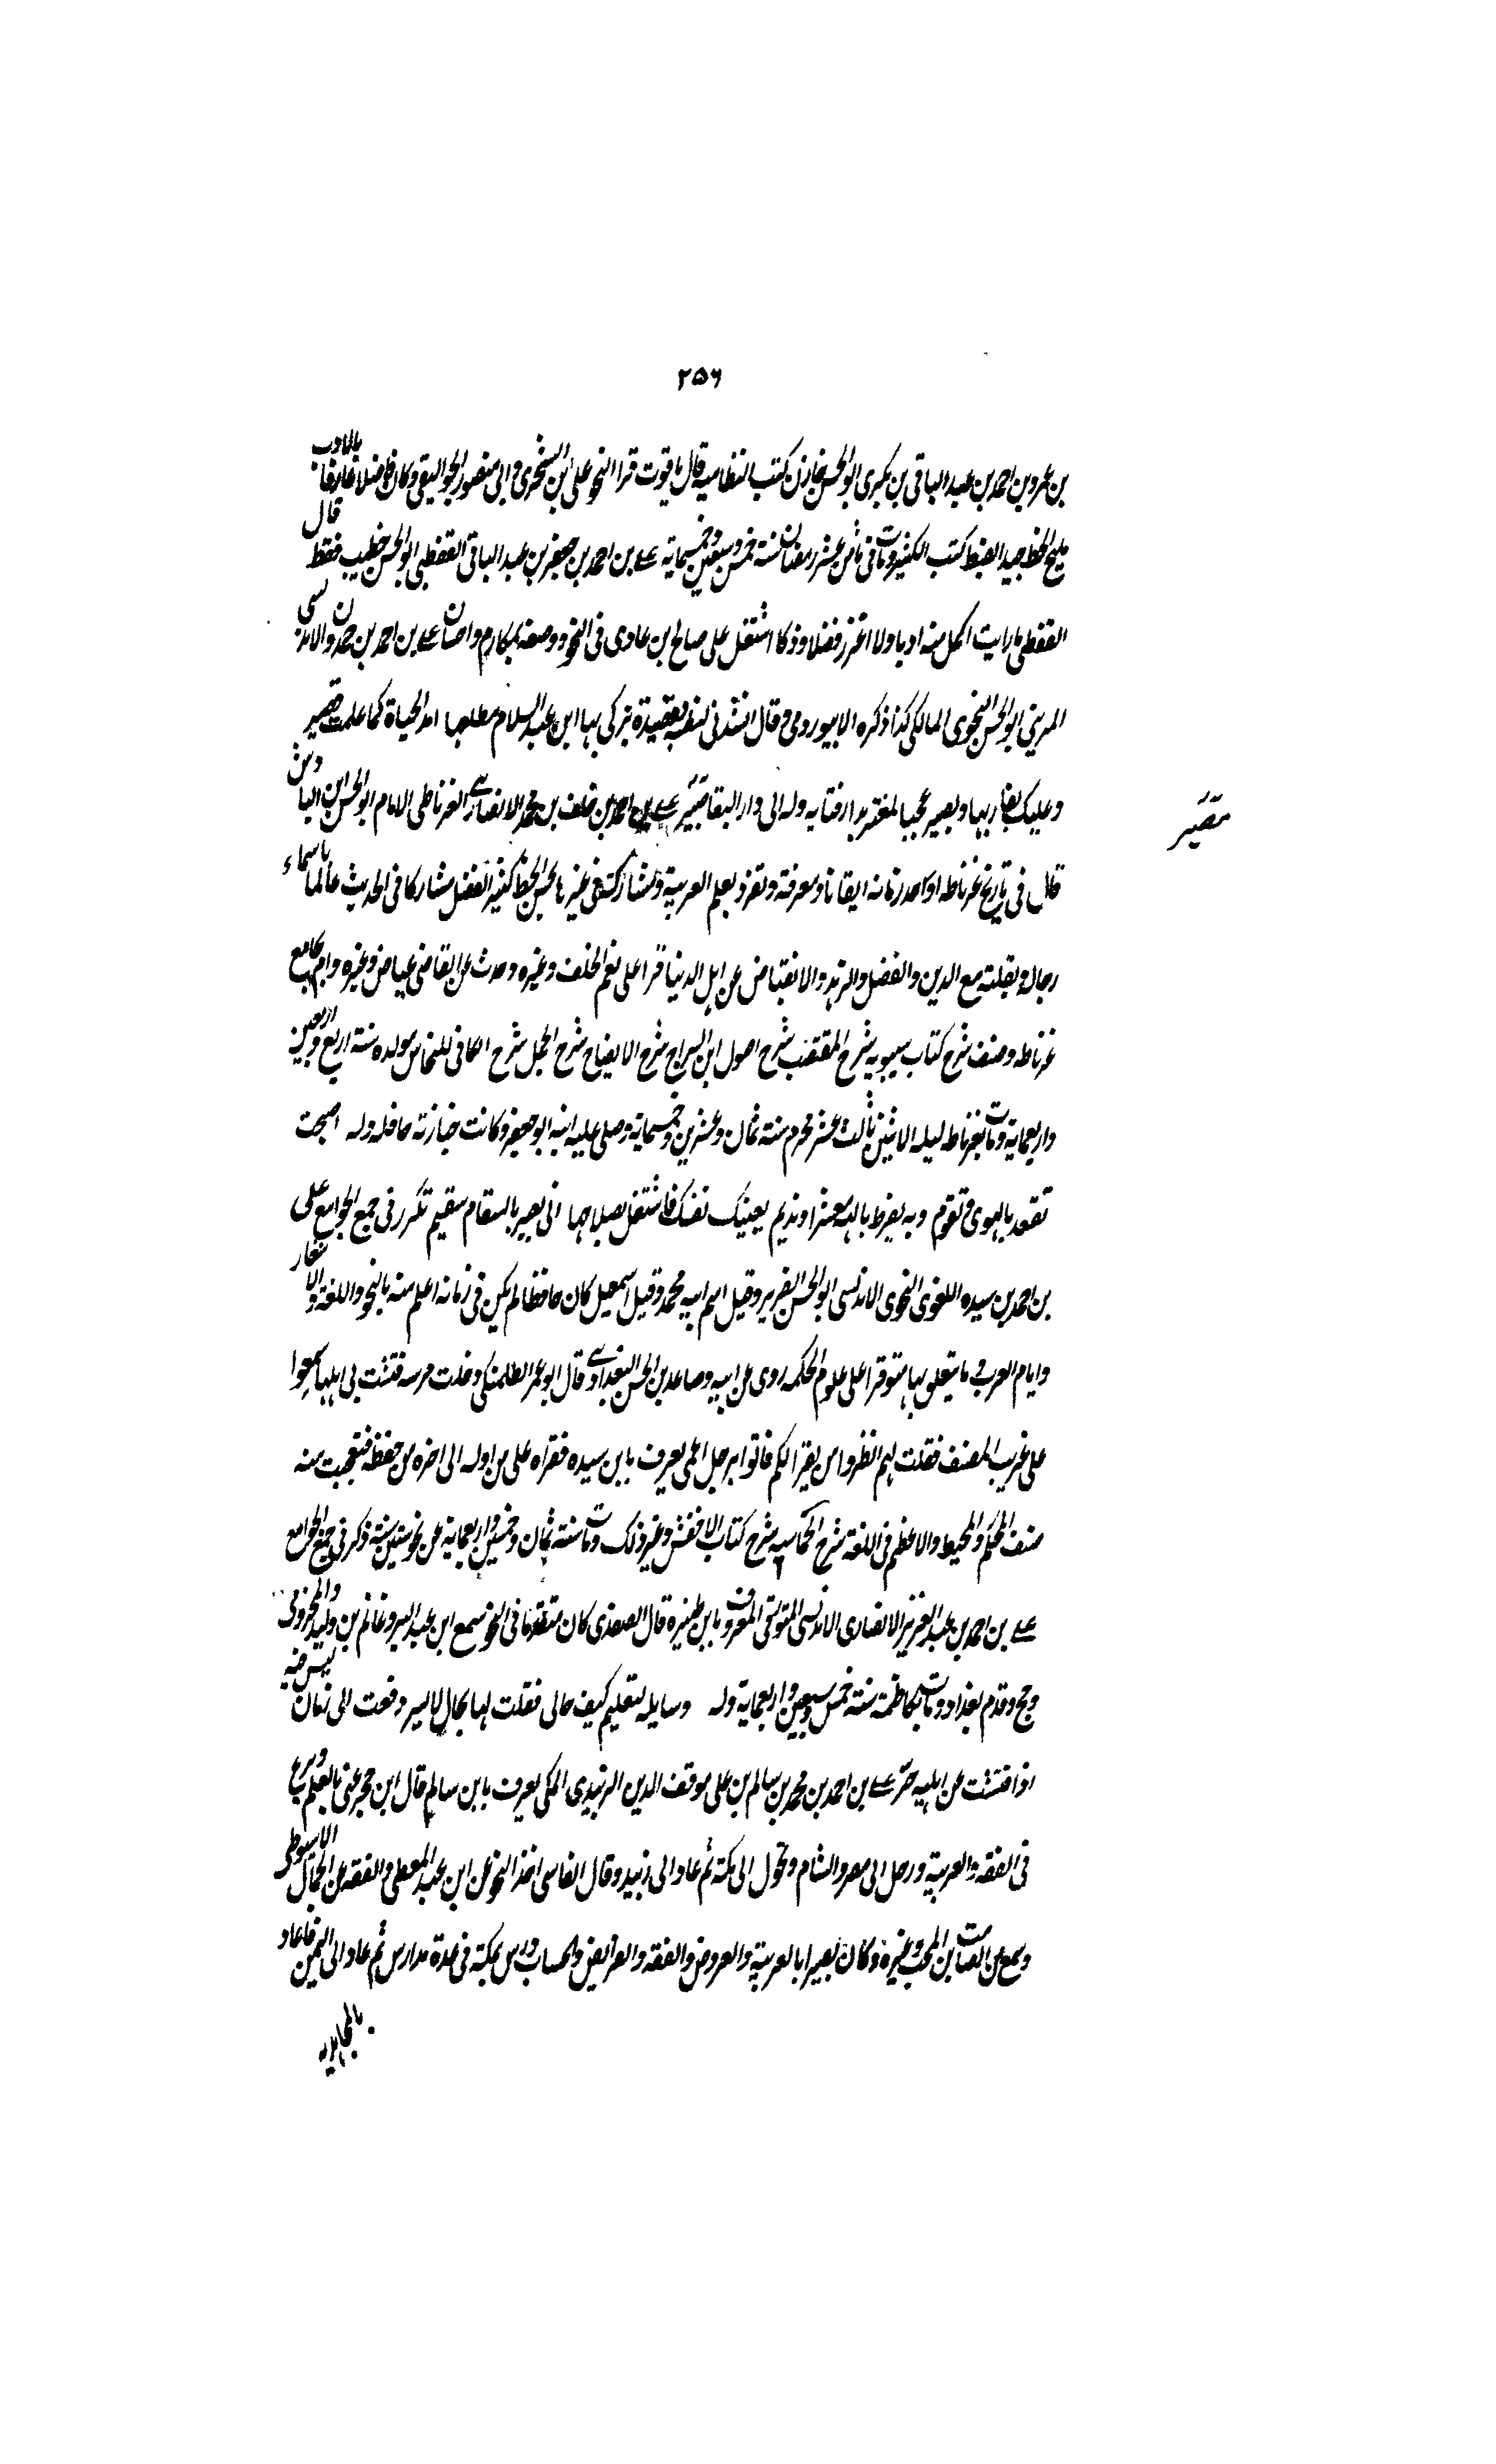 ٢٥٦
بن عمرو بن احمد بن عبد الباقى بن بكرى ابو الحسن خازن كتب النظاميه قال ياقوت قرا النحو على ابن الشجرى و ابى منصور الجواليقى و كان فاضلا عارفا بالادب
مليح الخط جيد الضبط كتب الكثير و مات فى ثامن عشر رمضان سنة خمس و سبعين و خمسماية على بن احمد بن جعفر بن عبد الباقى القفطى ابو الحسن خطيب قفط قال
القفطى ما رايت اكمل منه ادبا ولا اغزر فضلا و ذكا اشتغل على صالح بن عادى فى النحو و وصفه بمكارم و احسان على بن احمد بن حمدون الاندلسى
المرينى ابو الحسن النحوى المالكى كذا ذكره الابيوردى و قال انشدنى لنفسه قصيدة يزكى بها ابن عبد السلام مطلعها امد الحياة كما علمت قصير
و عليك نقاد بها و بصير عجبا لمغتر بدار فنايه وله الى دار البقا مصير على بن احمد بن خلف بن محمد الانصارى الغرناطى الامام ابو الحسن ابن الباذش
قال فى تاريخ غرناطه اوحد زمانه ايقانا و معرفة و تفرد بعلم العربية و مشاركته فى غيرها حسن الخط كثير الفضل مشاركا فى الحديث عالما باسماء
رجاله و نقلته مع الدين و الفضل و الزهد و الانقباض عن اهل الدنيا قرا على نعم الخلف و غيره و حدث عن القاضى عياض و غيره و ام بجامع
غرناطه و صنف شرح كتاب سيبويه شرح المقتضب شرح اصول ابن السراج شرح الايضاح شرح الجمل شرح الكافى للنحاس مولده سنة اربع و اربعين
و اربعماية و مات بغرناطه ليله الاثنين ثالث عشر محرم سنة ثمان و عشرين و خمسماية و صلى عليه ابنه ابو جعفر و كانت جنازته حافله وله اصبحت
تقعد بالهوى و تقوم و به يفرط بالله معشرا و نديم يعنيك نفسك فاشتغل بصلاحها انى بعير بالسقام سقيم تكرر فى جمع الجوامع على
بن احمد بن سيده اللغوى النحوى الاندلسى ابو الحسن الضرير و قيل اسم ابيه محمد و قيل اسمعيل كان حافظا لم يكن فى زمانه اعلم منه بالنحو و اللغة و الاشعار
و ايام العرب و ما يتعلق بها متوقرا على علوم الحكمه روى عن ابيه و صاعد بن الحسن البغدادى قال ابو عمر الطلمنكى دخلت مرسيه فتشبث بى اهلها ليسمعوا
على غريب المصنف فقلت لهم انظروا من يقرا لكم فاتوا برجل اعمى يعرف بابن سيده فقراه على من اوله الى اخره من حفظه فتعجبت منه
صنف المحكم و المحيط و الاعظم فى اللغة شرح الحماسيه شرح كتاب الاخفش و غير ذلك و مات سنة ثمان و خمسين و اربعماية عن نحو ستين سنة ذكر فى جمع الجوامع
على بن احمد بن عبد العزيز الانصارى الاندلسى الميورقى المعروف بابن طنيزه قال الصفدى كان متقدما فى النحو سمع ابن عبد البر و غانم بن وليد المخزومى
و حج و قدم بغداد و مات بكاظمة سنة خمس و سبعين و اربعماية وله و سايلة لتعلم كيف حالى فقلت لها بحال لا يسر دفعت الى زمان ليس فيه
اذا فتشت عن اهليه حر على بن احمد بن محمد بن سالم بن على موفق الدين الزبيدى المكى يعرف بابن سالم قال ابن حجر عنى بالعلم و برع
فى الفقه و العربية و رحل الى مصر و الشام و تحول الى مكة ثم عاد الى زبيد و قال الفاسى اخذ النحو عن ابن عبد المعطى و الفقه عن الجمال الاسيوطى
و سمع من الصامت ابن المحب و غيره و كان بصيرا بالعربية و العروض و الفقه و الفرايض و الحساب و درس بمكة فى عدة مدارس ثم عاد الى اليمن فاعاد
مصير